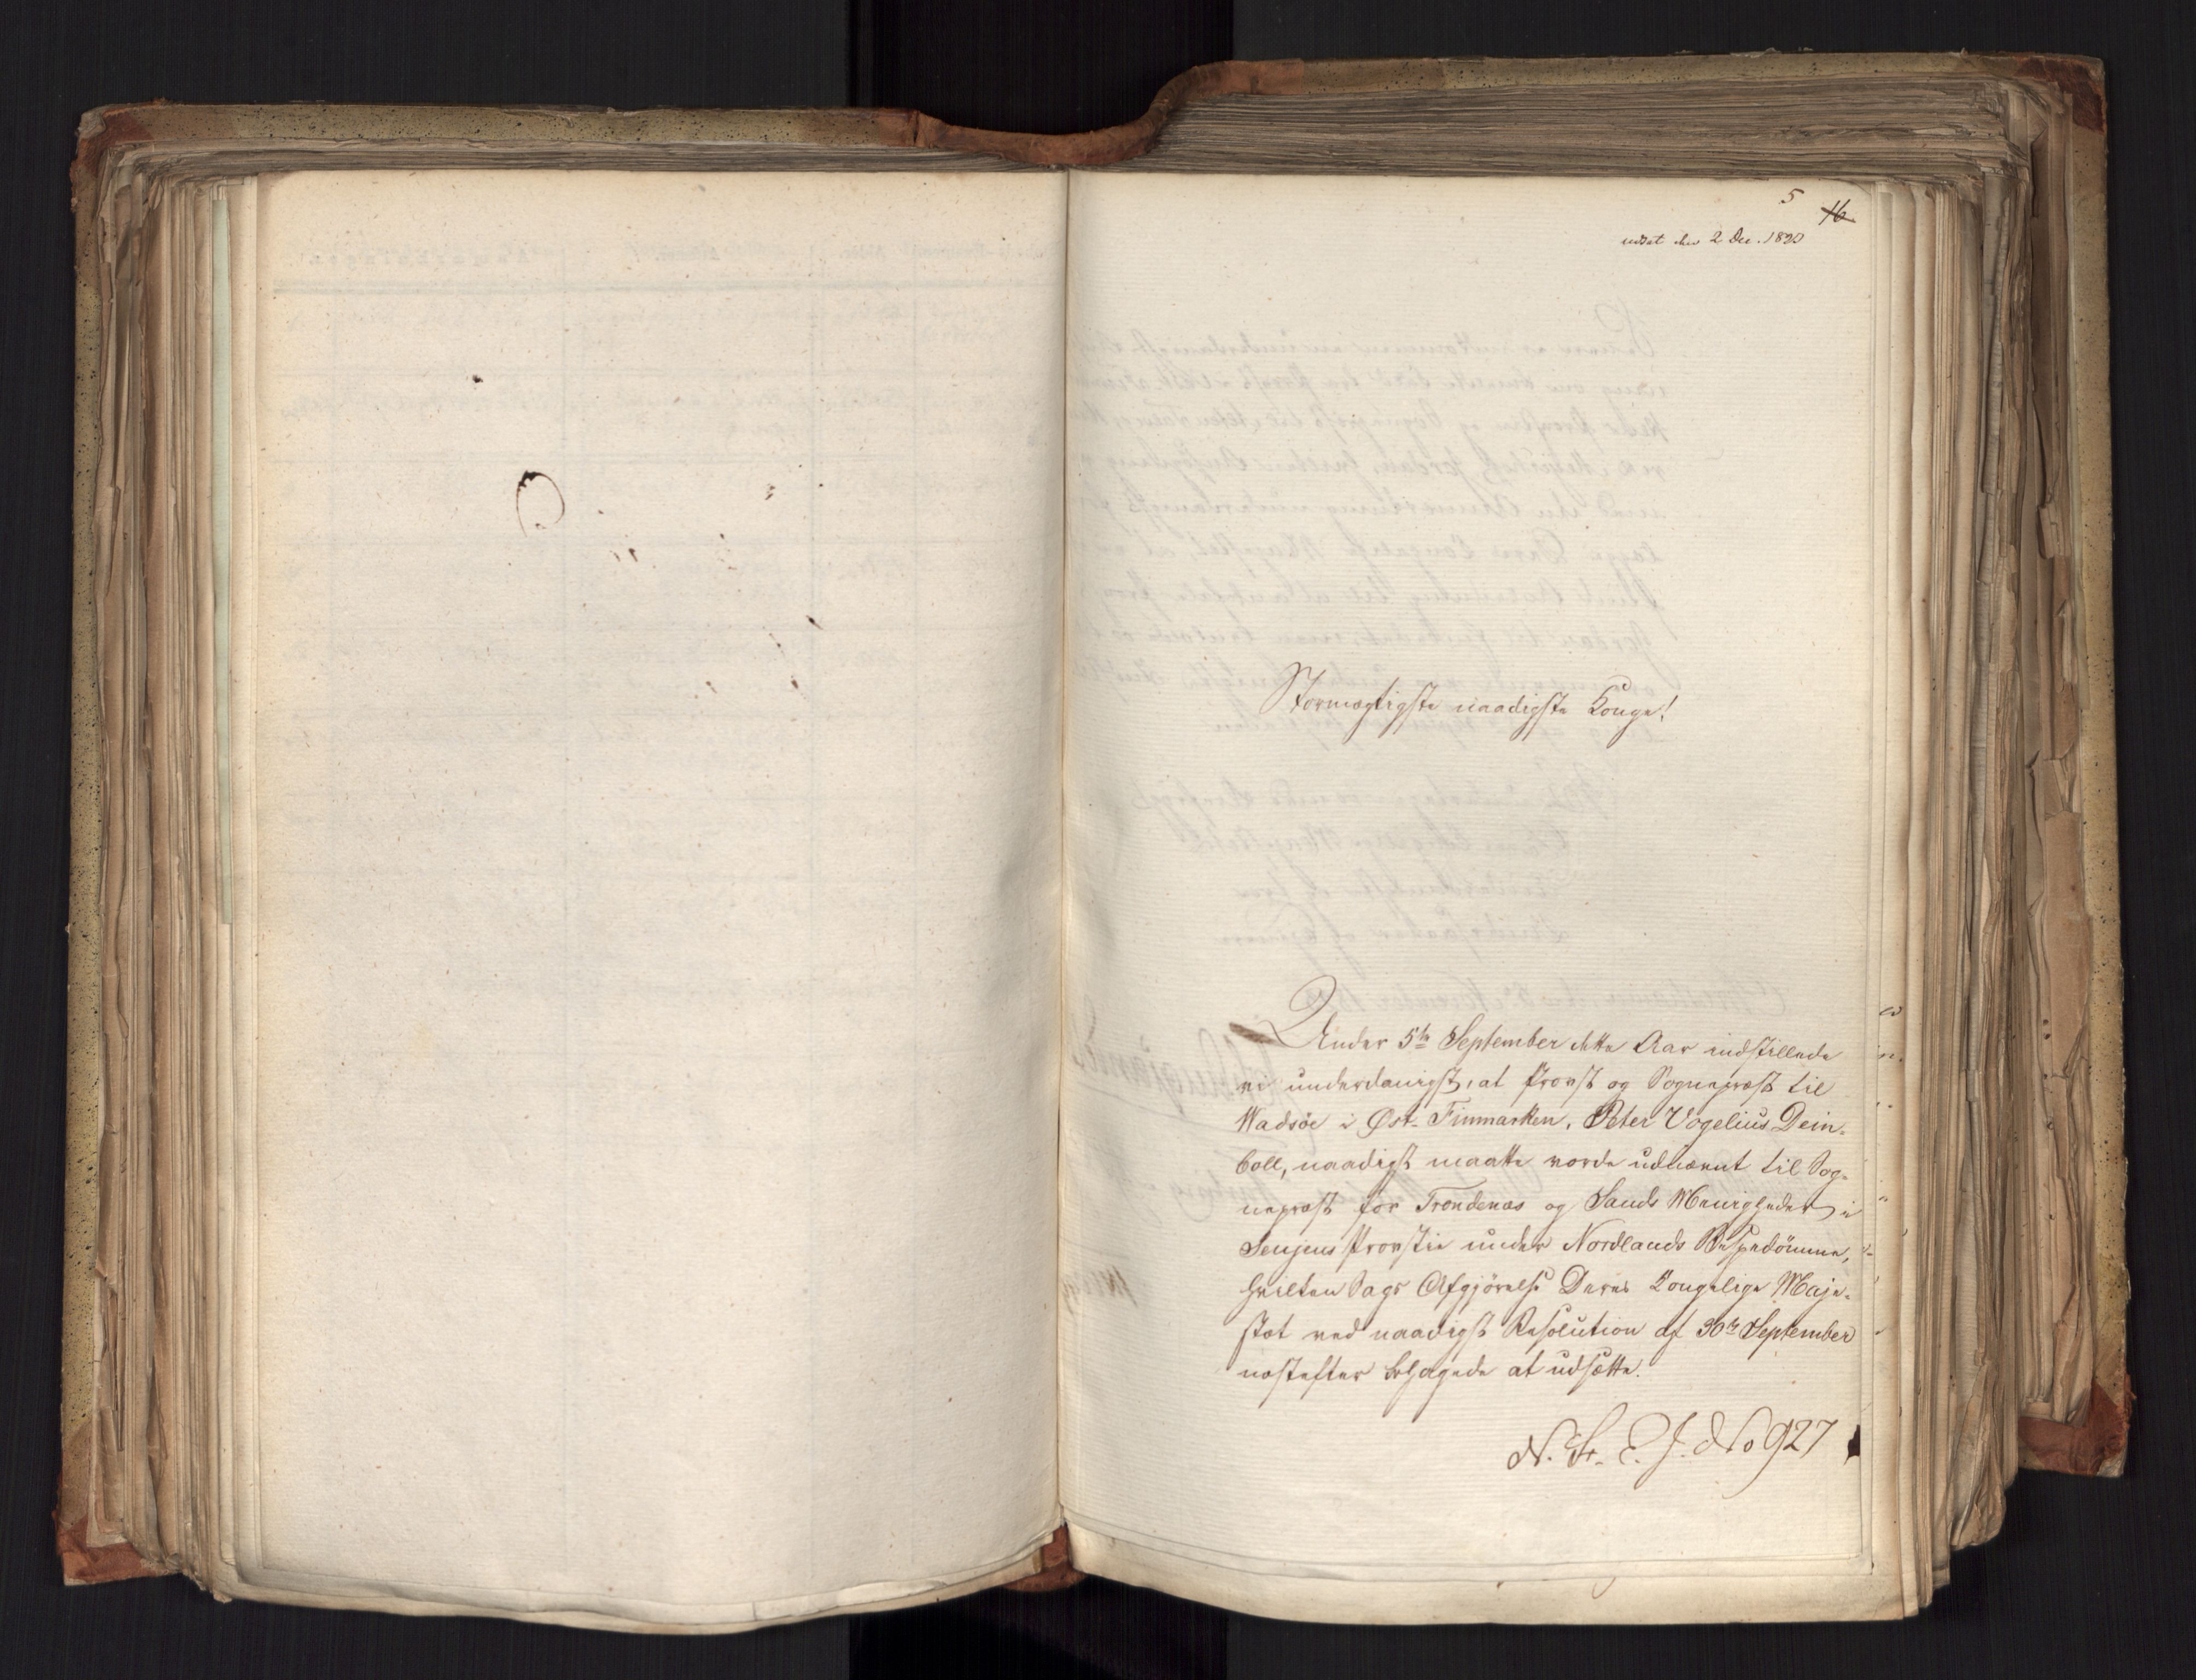 5
16
udsat den 2 Dec. 1823
Stormægtigste naadigste Konge!
Under 5te September dette Aar indstillede
vi underdanigst, at Provst og Sognepræst til
Wadsöe i Øst-Finmarken, Peter Vogelius Dein-
boll, naadigst maatte vorde udnævnt til Sog-
nepræst for Trondenæs og Sands Menigheder i
Senjens Provstie under Nordlands Bispedömme,
hvilken Sags Afgjörelse Deres Kongelige Maje-
stæt ved naadigst Resolution af 30te September
næstefter behagede at udsætte.
N. St. E. J. No 927